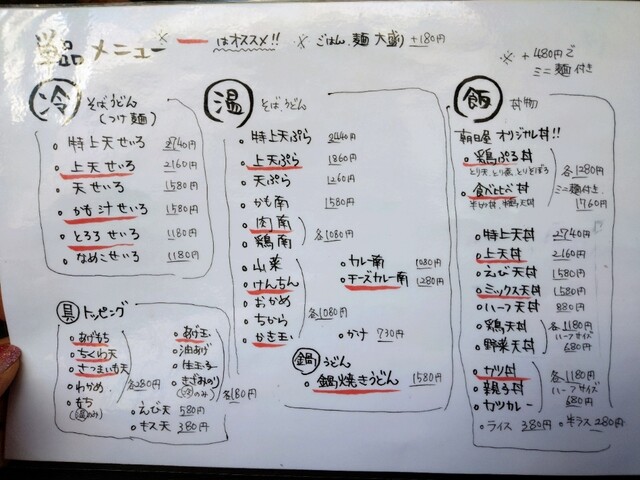 単品メニュー
※ ー はオススメ!! ※ ごはん、麺 大盛り +180円
※ +480円で
ミニ麺付き
冷 そば、うどん
(つけ麺)
・特上天せいろ 2740円
・上天せいろ 2160円
・天せいろ 1580円
・かも汁せいろ 1580円
・とろろせいろ 1180円
・なめこせいろ 1180円
具 トッピング
・あげもち
・ちくわ天
・さつまいも天
・わかめ
・もち
(温のみ)
各280円
・あげ玉
・油あげ
・生玉子
・きざみのり
(冷のみ)
各180円
・えび天 580円
・キス天 380円
温 そば、うどん
・特上天ぷら 2440円
・上天ぷら 1860円
・天ぷら 1260円
・かも南 1580円
・肉南
・鶏南
各1080円
・山菜
・けんちん
・おかめ
・ちから
・かき玉
各1080円
・カレー南 1080円
・チーズカレー南 1280円
・かけ 730円
鍋 うどん
・鍋焼きうどん 1580円
飯 丼物
朝日屋 オリジナル丼!!
・鶏ぷる丼
とり天、とり煮、とりそぼろ
・食べ比べ丼
各1280円
ミニ麺付き
1760円
・特上天丼 2740円
・上天丼 2160円
・えび天丼 1580円
・ミックス天丼 1580円
・ハーフ天丼 880円
・鶏天丼
・野菜天丼
各1180円
ハーフサイズ
680円
・カツ丼
・親子丼
・カツカレー
各1180円
ハーフサイズ
680円
・ライス 380円 ・半ラス 280円